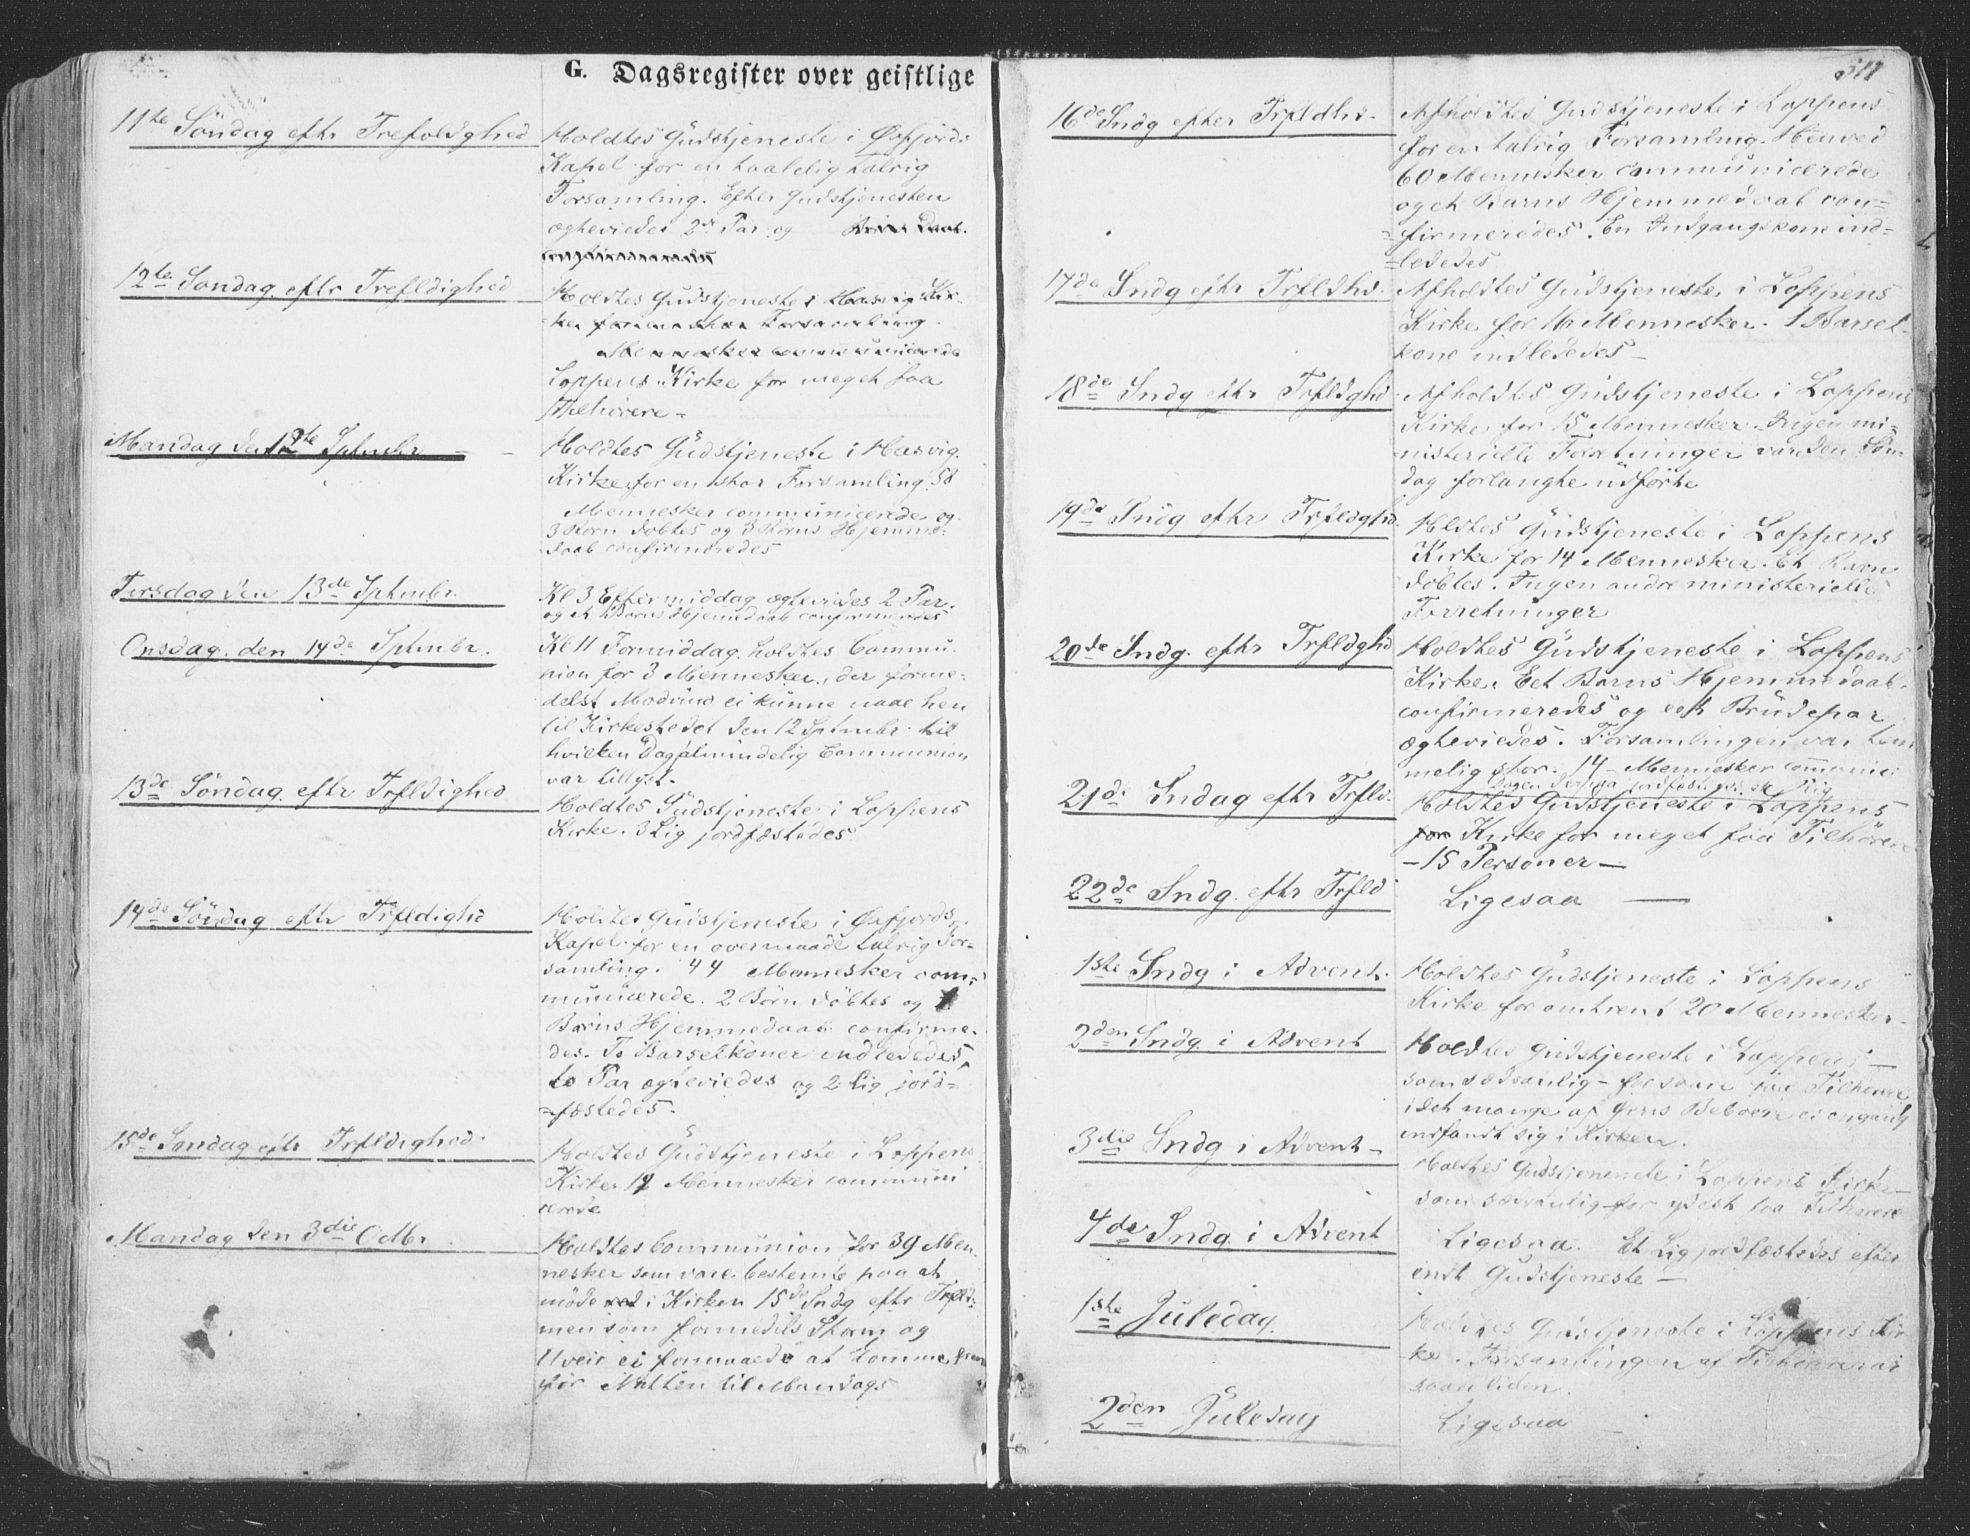 G. Dagsregister over geistlige
11te Söndag eftr Trefoldighed
Holdtes Gudstjeneste i Øxfjords
Kapel for en taalelig talrig
Forsamling. Efter Gudstjenesten
ægteviedes 2de Par og
12te Søndag eftr Trefldighed
Holdtes Gudstjeneste i Hasvig Kir-
ke for en stor Forsamling.
Mennesker communicerede
Loppens Kirke for meget faa
Tilhörere -
Mandag den 12te Sptmbr
Holdtes Gudstjeneste i Hasvig
Kirke for en stor Forsamling 58
Mennesker communicerede og
3 Børn döbtes og 3 Börns Hjemme-
daab confirmeredes
Tirsdag den 13de Sptmbr.
Kl 3 Eftermiddag ægteviedes 2 Par.
og et Barns Hjemedaab confirmeredes
Onsdag den 14de Sptmbr.
Kl 11 Formiddag holdtes Commu-
nion for 3 Mennesker, der forme-
delst Modvind ei kunne naae hen
til Kirkestedet den 12 Sptmbr. til
hvilken Dag almindelig Communion
var tillyst.
13de Söndag eftr Trfldighed
Holdtes Gudstjeneste i Loppens
Kirke. 3 Lig jordfæstedes
14de Söndag eftr Trfldighd
Holdtes Gudstjeneste i Øxfjords
Kapel for en overmaade talrig For-
samling. 44 Mennesker com-
municerede. 2 Börn döbtes og 1
Barns Hjemmedaab confirme-
des. To Barselkoner indlededes,
to Par ægteviedes og 2 Lig jord-
fæstedes.
15de Søndag eftr Trfldighed.
Holdtes Gudstjeneste i Loppens
Kirke 12 Mennesker communi
cerede
Mandag den 3die Octbr.
Holdtes Communion for 39 Men
nesker som vare bestemte paa at
møde ved i Kirken 15de Sndg eftr Trfld-
men som formedelst Storm og
Uveir ei formaaede at komme frem
før Natten til Mandags
311
16de Sndg efter Trfldhd.
Afholdtes Gudstjeneste i Loppens
for en talrig Forsamling. Henved
60 Mennesker communicerede
og et Barns Hjemmedaab con-
firmeredes. En Indgangskone ind-
ledes
17de Sndg eftr Trfldhd.
Afholdtes Gudstjeneste i Loppens
Kirke for Mennesker. 1 Barsel-
kone indlededes -
18de Sndg eftr Trfldghd
Afholdtes Gudstjeneste i Loppens
Kirke for 15 Mennesker. Ingen mi-
nisterielle Forretninger var den Søn-
dag forlangte udførte
19de Sndg eftr Trfldghd.
Holdtes Gudstjeneste i Loppens
Kirke for 14 Mennesker. Et Barn
döbtes. Ingen andre ministerielle
Forretninger
20de Sndg. eftr Trfldghd
Holdtes Gudstjeneste i Loppens
Kirke. Eet Barns Hjemmedaab
confirmeredes og eet Brudepar
ægteviedes. Forsamlingen var tem
melig stor. 14 Mennesker communi
21de Sndag eftr Trfld.
Holdtes Gudstjeneste i Loppens
for Kirke for meget faa Tilhörere
- 15 Personer -
22de Sndg. eftr Trfld
Ligesaa
1ste Sndg i Advent.
Holdtes Gudstjeneste i Loppens
Kirke for omtrent 20 Mennesker
2den Sndg. i Advent
Holdtes Gudstjeneste i Loppens -
som sædvanlig - for saare faa Tilhørere
idet mange af Øens Beboere ei engang
indfandt sig i Kirken.
3die Sndg i Advent -
Holdtes Gudstjeneste i Loppens Kirke -
som sædvanlig for yderst faa Tilhörere
4de Sndg. i Advent
Ligesaa. Et Lig jordfæstedes efter
endt Gudstjeneste -
1ste Juledag.
Holdtes Gudstjeneste i Loppens Kir-
ke. Forsamlingen af Tilhörere var
saare liden.
2den Juledag
Ligesaa